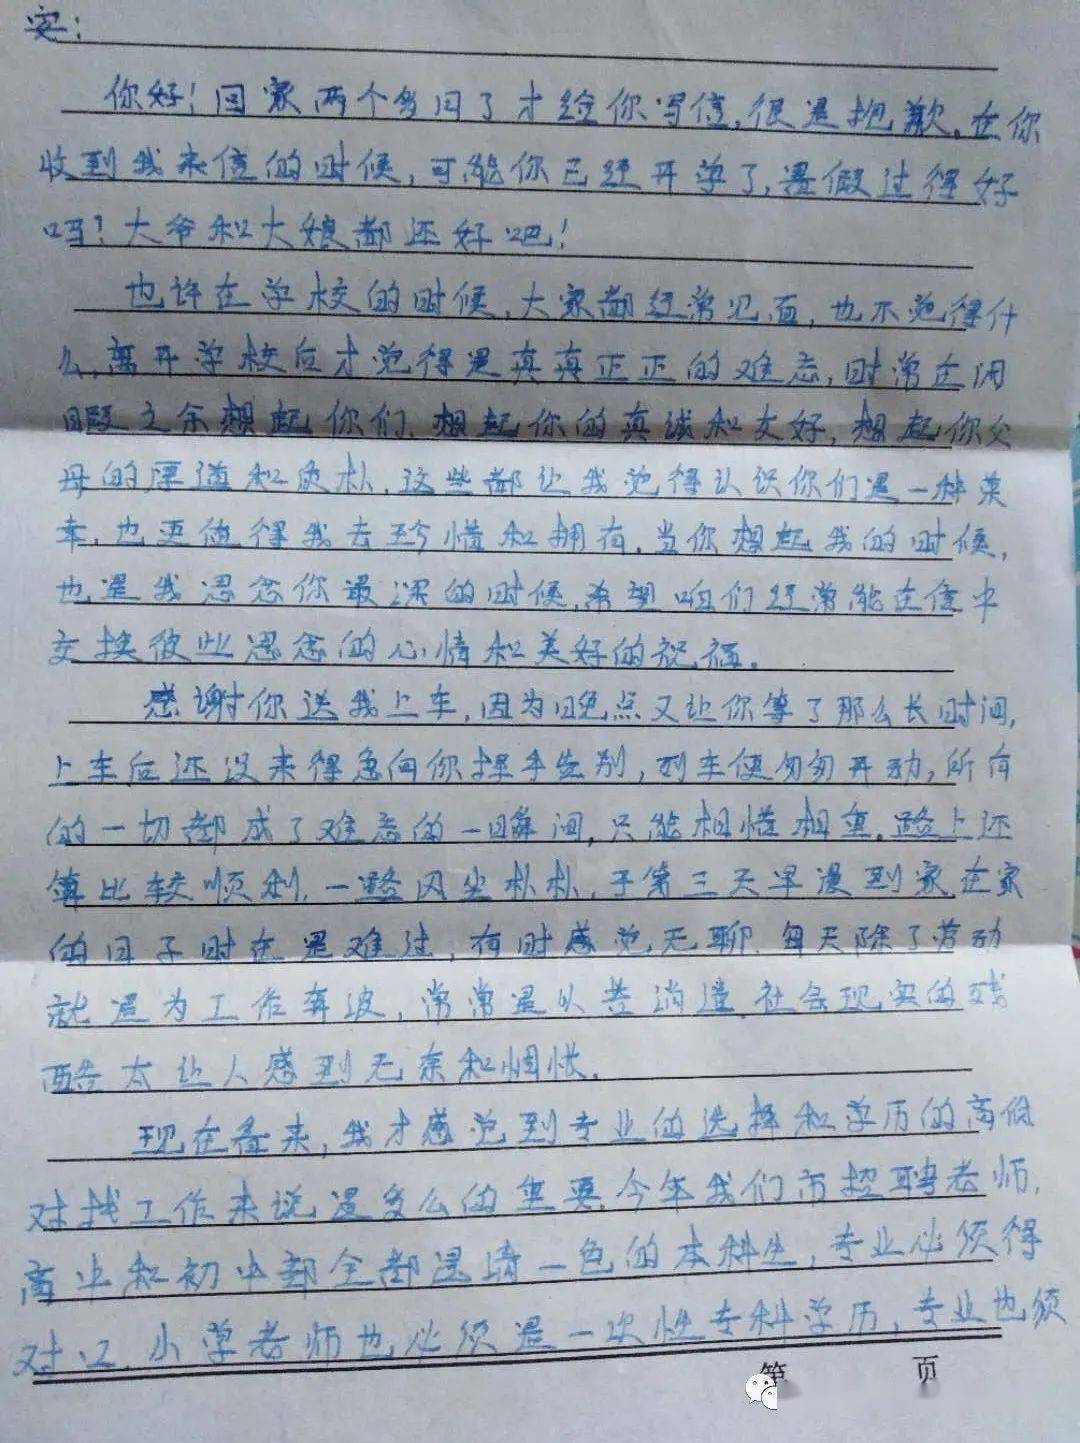 安：
你好！回家两个多月了才给你写信，很是抱歉。在你
收到我来信的时候，可能你已经开学了，暑假过得好
吗？大爷和大娘都还好吧！
也许在学校的时候，大家都经常见面，也不觉得什
么，离开学校后才觉得是真真正正的难忘，时常在闲
暇之余想起你们，想起你的真诚和友好，想起你父
母的厚道和质朴，这些都让我觉得认识你们是一种荣
幸，也更值得我去珍惜和拥有。当你想起我的时候，
也是我思念你最深的时候，希望咱们经常能在信中
交换彼此思念的心情和美好的祝福。
感谢你送我上车，因为晚点又让你等了那么长时间，
上车后还没来得急向你挥手告别，列车便匆匆开动，所有
的一切都成了难忘的一瞬间，只能相惜相重。路上还
算比较顺利，一路风尘朴朴，于第三天早漫到家，在家
的日子时在是难过，有时感觉无聊，每天除了劳动
就是为工作奔波，常常是以差消遣，社会现实的残
酷太让人感到无奈和惆怅。
现在看来，我才感觉到专业的选择和学历的高低
对找工作来说是多么的重要，今年我们市招聘老师，
高中和初中都全部是清一色的本科生，专业必须得
对口，小学老师也必须是一次性专科学历，专业也须
第 页